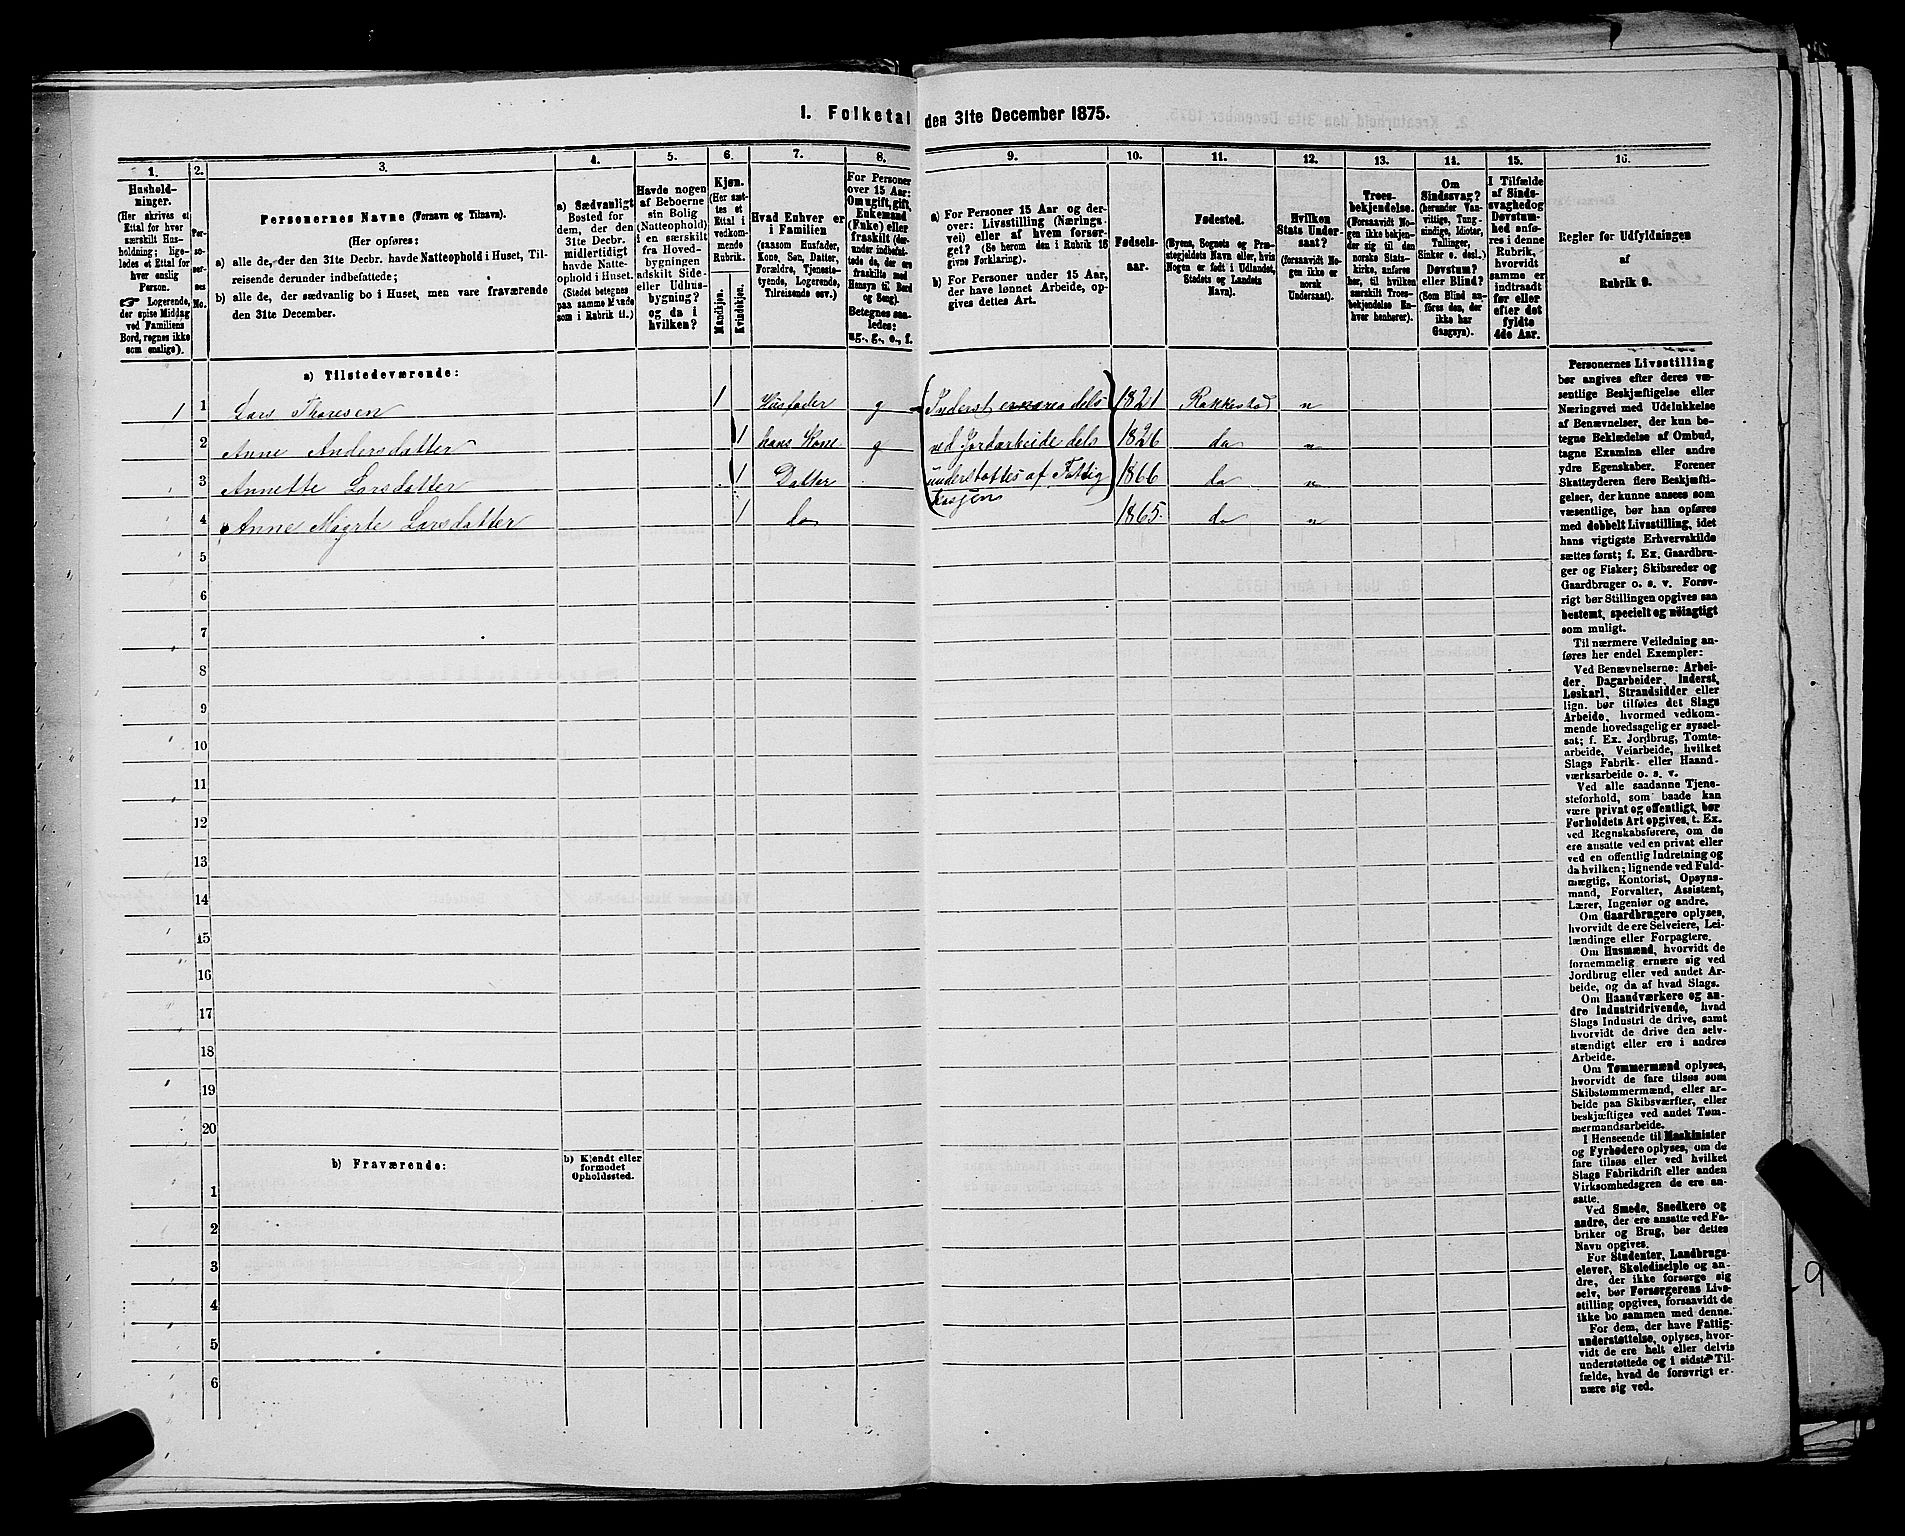 1. Folketal den 31te December 1875.
1.
Hushold-
ninger.
(Her skrives et
Ettal for hver
særskilt Hus-
holdning; lige-
ledes et Ettal for
hver enslig
Person.
☞ Logerende,
der spise Middag
ved Familiens
Bord, regnes ikke
som enslige).
2.
Per-
so-
ner-
nes
No.
3.
Personernes Navne (Fornavn og Tilnavn).
(Her opføres:
a) alle de, der den 31te Decbr. havde Natteophold i Huset, Til-
reisende derunder indbefattede;
b) alle de, der sædvanlig bo i Huset, men vare fraværende
den 31te December.
4.
a) Sædvanligt
Bosted for
dem, der den
31te Decbr.
midlertidigt
havde Natte-
ophold i Huset.
(Stedet betegnes
paa samme Maade
som i Rubrik 11.)
5.
Havde nogen
af Beboerne
sin Bolig
(Natteophold)
i en særskilt
fra Hoved-
bygningen
adskilt Side-
eller Udhus-
bygning?
og da i
hvilken?
6.
Kjøn.
(Her sæt-
tes et
Ettal i
vedkom-
mende
Rubrik.
Mandkjøn.
Kvindekjøn.
7.
Hvad Enhver er
i Familien
(saasom Husfader,
Kone, Søn, Datter,
Forældre, Tjeneste-
tyende, Logerende,
Tilreisende osv.)
8.
For Personer
over 15 Aar:
Om ugift, gift,
Enkemand
(Enke) eller
fraskilt (der-
under indbefat-
tede de, der ere
fraskilte med
Hensyn til Bord
og Seng).
Betegnes saa-
ledes:
ug., g., e., f.
9.
a) For Personer 15 Aar og der-
over: Livsstilling (Nærings-
vei) eller af hvem forsør-
get? (Se herom den i Rubrik 16
givne Forklaring).
b) For Personer under 15 Aar,
der have lønnet Arbeide, op-
gives dettes Art.
10.
Fødsels-
aar.
11.
Fødested.
(Byens, Sognets og Præ-
stegjeldets Navn eller, hvis
Nogen er født i Udlandet,
Stedets og Landets
Navn).
12.
Hvilken
Stats Under-
saat?
(forsaavidt No-
gen ikke er
norsk
Undersaat).
13.
Troes-
bekjendelse.
(Forsaavidt No-
gen ikke bekjen-
der sig til den
norske Stats-
kirke, anføres
her, til hvilken
særskilt Troes-
bekjendelse En-
hver henhører).
14.
Om
Sindssvag?
(herunder Van-
vittige, Tung-
sindige, Idioter,
Tullinger,
Sinker o. desl.)
Døvstum?
eller Blind?
(Som Blind an-
føres den, der
ikke har
Gangsyn).
15.
I Tilfælde
af Sinds-
svaghed og
Døvstum-
hed anfø-
res i denne
Rubrik,
hvorvidt
samme er
indtraadt
før eller
efter det
fyldte
4de Aar.
16.
Regler for Udfyldningen
af
Rubrik 9.
a) Tilstedeværende:
1 1 Lars Thoresen 1 Husfader g Inderst ernæres dels 1821 Rakkestad n
2 Anne Andersdatter 1 hans Kone g ved Jordarbeide dels 1826 do n
3 Annette Larsdatter 1 Datter understøttes af Fattig 1866 do n
kasjen
4 Anne Magrte Larsdatter 1 do 1865 do n
5
6
7
8
9
10
11
12
13
14
15
16
17
18
19
20
b) Fraværende:
b) Kjendt eller
formodet
Opholdssted.
1
2
3
4
5
6
Personernes Livsstilling
bør angives efter deres væ-
sentlige Beskjæftigelse eller
Næringsvei med Udelukkelse
af Benævnelser, der kun be-
tegne Beklædelse af Ombud,
tagne Examina eller andre
ydre Egenskaber. Forener
Skatteyderen flere Beskjæfti-
gelser, der kunne ansees som
væsentlige, bør han opføres
med dobbelt Livsstilling, idet
hans vigtigste Erhvervskilde
sættes først; f. Ex. Gaardbru-
ger og Fisker; Skibsreder og
Gaardbruger o. s. v. Forøv-
rigt bør Stillingen opgives saa
bestemt, specielt og nöiagtigt
som muligt.
Til nærmere Veiledning an-
føres her endel Exempler:
Ved Benævnelserne: Arbei-
der, Dagarbeider, Inderst,
Løskarl, Strandsidder eller
lign. bør tilføies det Slags
Arbeide, hvormed vedkom-
mende hovedsagelig er syssel-
sat; f. Ex. Jordbrug, Tomte-
arbeide, Veiarbeide, hvilket
Slags Fabrik- eller Haand-
værksarbeide o. s. v.
Ved alle saadanne Tjene-
steforhold, som baade kan
være privat og offentligt, bør
Forholdets Art opgives, t. Ex.
ved Regnskabsførere, om de
ere ansatte ved en privat eller
ved en offentlig Indretning og
da hvilken; lignende ved Fuld-
mægtig, Kontorist, Opsyns-
mand, Forvalter, Assistent,
Lærer, Ingeniør og andre.
Om Gaardbrugere oplyses,
hvorvidt de ere Selveiere, Lei-
lændinge eller Forpagtere.
Om Husmænd, hvorvidt de
fornemmelig ernære sig ved
Jordbrug eller ved andet Ar-
beide, og da af hvad Slags.
Om Haandværkere og an-
dre Industridrivende, hvad
Slags Industri de drive, samt
hvorvidt de drive den selv-
stændigt eller ere i andres
Arbeide.
Om Tømmermænd oplyses,
hvorvidt de fare tilsøs som
Skibstømmermænd, eller ar-
beide paa Skibsværfter, eller
beskjæftiges ved andet Tøm-
mermandsarbeide.
I Henseende til Maskinister
og Fyrbødere oplyses, om de
fare tilsøs eller ved hvilket
Slags Fabrikdrift eller anden
Virksomhedsgren de ere an-
satte.
Ved Smede, Snedkere og
andre, der ere ansatte ved Fa-
briker og Brug, bør dettes
Navn opgives.
For Studenter, Landbrugs-
elever, Skoledisciple og an-
dre, der ikke forsørge sig
selv, bør Forsørgerens Livs-
stilling opgives, forsaavidt de
ikke bo sammen med denne.
For dem, der have Fattig-
understøttelse, oplyses, hvor-
vidt de ere helt eller delvis
understøttede og i sidste Til-
fælde, hvad de forøvrigt er-
nære sig ved.
9